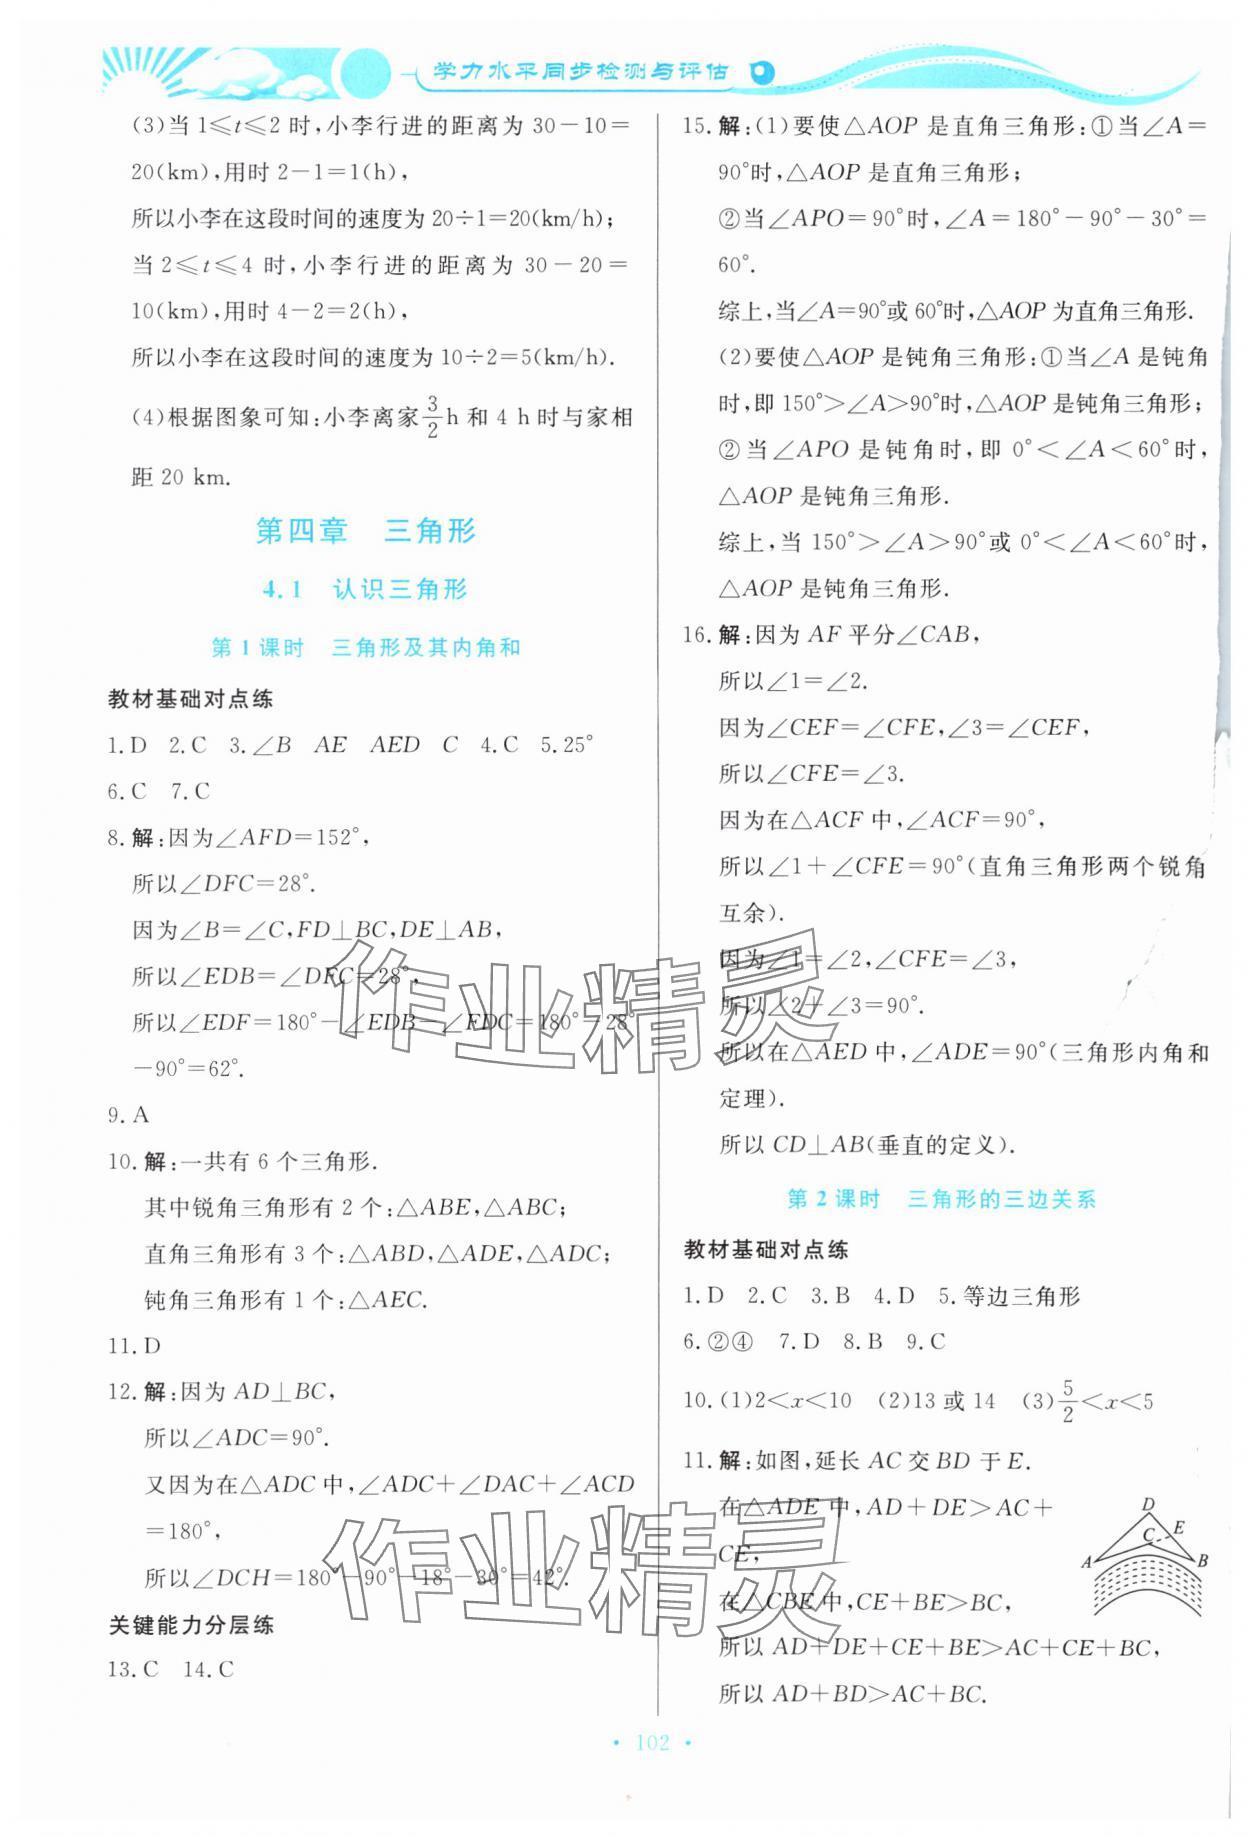 学力水平同步检测与评估
(3)当 1≤t≤2 时,小李行进的距离为 30－10＝
20(km),用时 2－1＝1(h),
所以小李在这段时间的速度为 20÷1＝20(km/h);
当 2≤t≤4 时,小李行进的距离为 30－20＝
10(km),用时 4－2＝2(h),
所以小李在这段时间的速度为 10÷2＝5(km/h).
(4)根据图象可知:小李离家 3/2 h 和 4 h 时与家相
距 20 km.
第四章 三角形
4.1 认识三角形
第 1 课时 三角形及其内角和
教材基础对点练
1.D 2.C 3.∠B AE AED C 4.C 5.25°
6.C 7.C
8.解:因为∠AFD＝152°,
所以∠DFC＝28°.
因为∠B＝∠C,FD⊥BC,DE⊥AB,
所以∠EDB＝∠DFC＝28°,
所以∠EDF＝180°－∠EDB－∠FDC＝180°－28°
－90°＝62°.
9.A
10.解:一共有 6 个三角形.
其中锐角三角形有 2 个:△ABE,△ABC;
直角三角形有 3 个:△ABD,△ADE,△ADC;
钝角三角形有 1 个:△AEC.
11.D
12.解:因为 AD⊥BC,
所以∠ADC＝90°.
又因为在△ADC 中,∠ADC＋∠DAC＋∠ACD
＝180°,
所以∠DCH＝180°－90°－18°－30°＝42°.
关键能力分层练
13.C 14.C
15.解:(1)要使△AOP 是直角三角形:①当∠A＝
90°时,△AOP 是直角三角形;
②当∠APO＝90°时,∠A＝180°－90°－30°＝
60°.
综上,当∠A＝90°或 60°时,△AOP 为直角三角形.
(2)要使△AOP 是钝角三角形:①当∠A 是钝角
时,即 150°>∠A>90°时,△AOP 是钝角三角形;
②当∠APO 是钝角时,即 0°<∠A<60°时,
△AOP 是钝角三角形.
综上,当 150°>∠A>90°或 0°<∠A<60°时,
△AOP 是钝角三角形.
16.解:因为 AF 平分∠CAB,
所以∠1＝∠2.
因为∠CEF＝∠CFE,∠3＝∠CEF,
所以∠CFE＝∠3.
因为在△ACF 中,∠ACF＝90°,
所以∠1＋∠CFE＝90°(直角三角形两个锐角
互余).
因为∠1＝∠2,∠CFE＝∠3,
所以∠2＋∠3＝90°.
所以在△AED 中,∠ADE＝90°(三角形内角和
定理).
所以 CD⊥AB(垂直的定义).
第 2 课时 三角形的三边关系
教材基础对点练
1.D 2.C 3.B 4.D 5.等边三角形
6.②④ 7.D 8.B 9.C
10.(1)2<x<10 (2)13 或 14 (3)5/2<x<5
11.解:如图,延长 AC 交 BD 于 E.
在△ADE 中,AD＋DE>AC＋
CE,
在△CBE 中,CE＋BE>BC,
所以 AD＋DE＋CE＋BE>AC＋CE＋BC,
所以 AD＋BD>AC＋BC.
D
C E
A B
作业精灵
作业精灵
· 102 ·